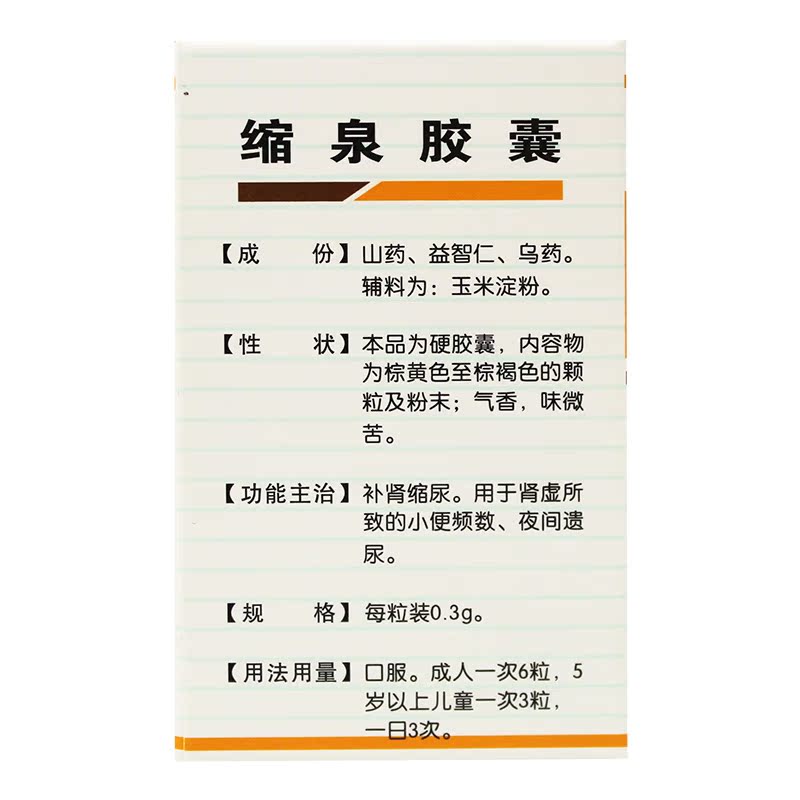 缩泉胶囊
【成份】山药、益智仁、乌药。
辅料为：玉米淀粉。
【性状】本品为硬胶囊，内容物
为棕黄色至棕褐色的颗
粒及粉末；气香，味微
苦。
【功能主治】补肾缩尿。用于肾虚所
致的小便频数、夜间遗
尿。
【规格】每粒装0.3g。
【用法用量】口服。成人一次6粒，5
岁以上儿童一次3粒，
一日3次。